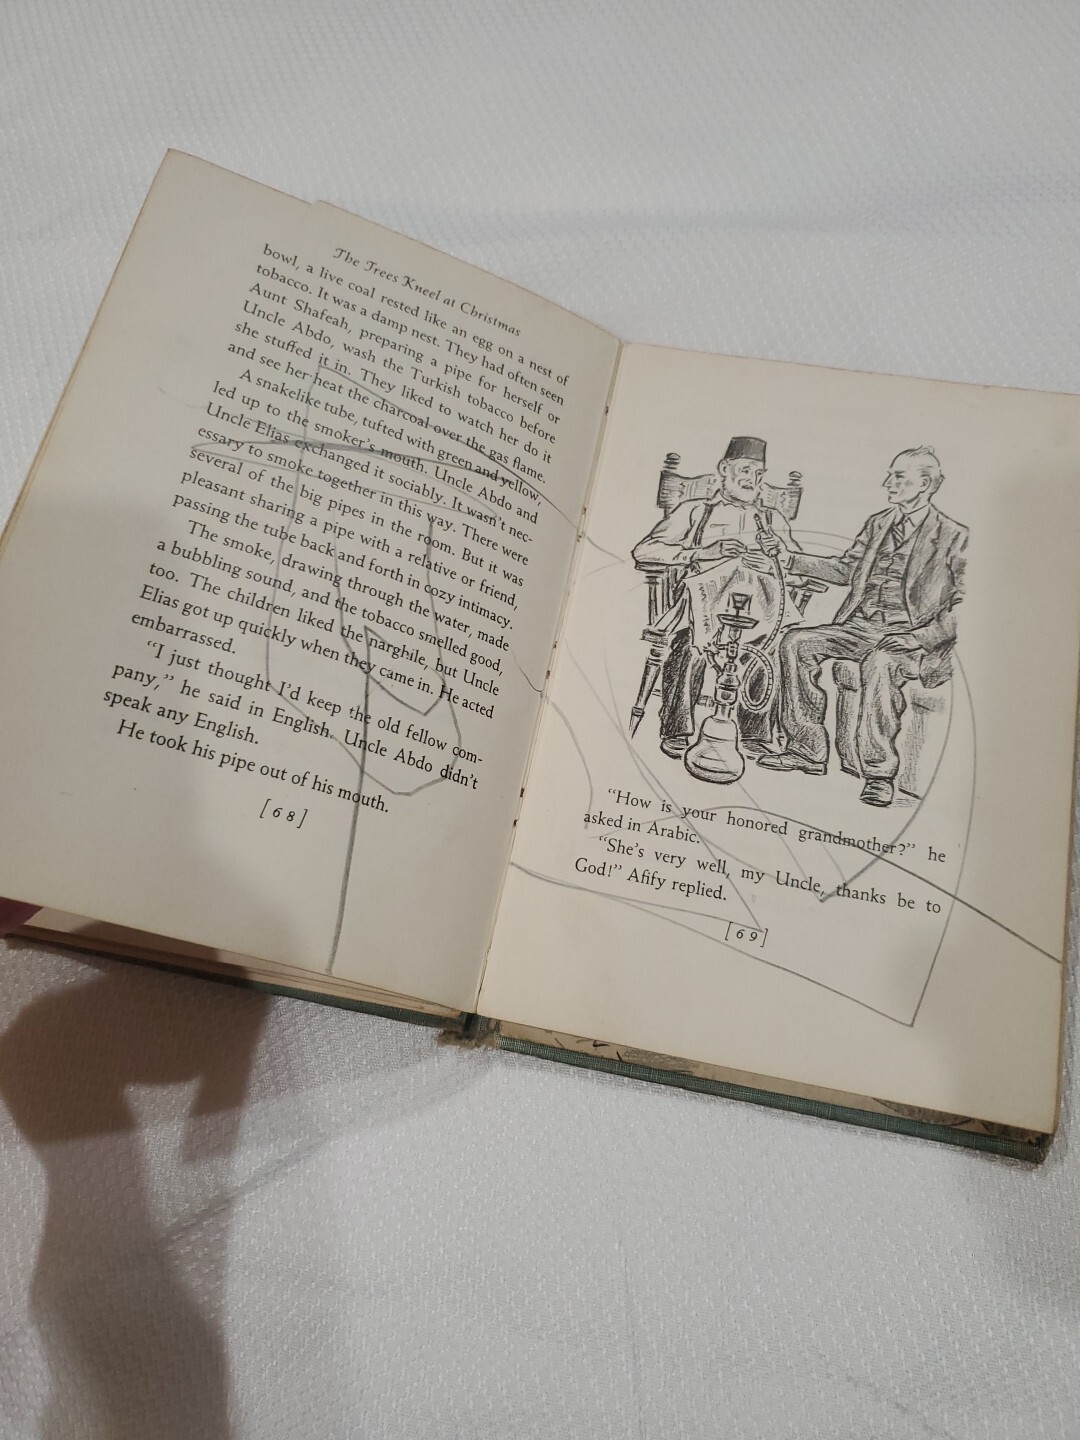 The Trees Kneel at Christmas
bowl, a live coal rested like an egg on a nest of
tobacco. It was a damp nest. They had often seen
Aunt Shafeah, preparing a pipe for herself or
Uncle Abdo, wash the Turkish tobacco before
she stuffed it in. They liked to watch her do it
and see her heat the charcoal over the gas flame.
A snakelike tube, tufted with green and yellow,
led up to the smoker's mouth. Uncle Abdo and
Uncle Elias exchanged it sociably. It wasn't nec-
essary to smoke together in this way. There were
several of the big pipes in the room. But it was
pleasant sharing a pipe with a relative or friend,
passing the tube back and forth in cozy intimacy.
The smoke, drawing through the water, made
a bubbling sound, and the tobacco smelled good,
too. The children liked the narghile, but Uncle
Elias got up quickly when they came in. He acted
embarrassed.
"I just thought I'd keep the old fellow com-
pany," he said in English. Uncle Abdo didn't
speak any English.
He took his pipe out of his mouth.
[68]
"How is your honored grandmother?" he
asked in Arabic.
"She's very well, my Uncle, thanks be to
God!" Afify replied.
[69]